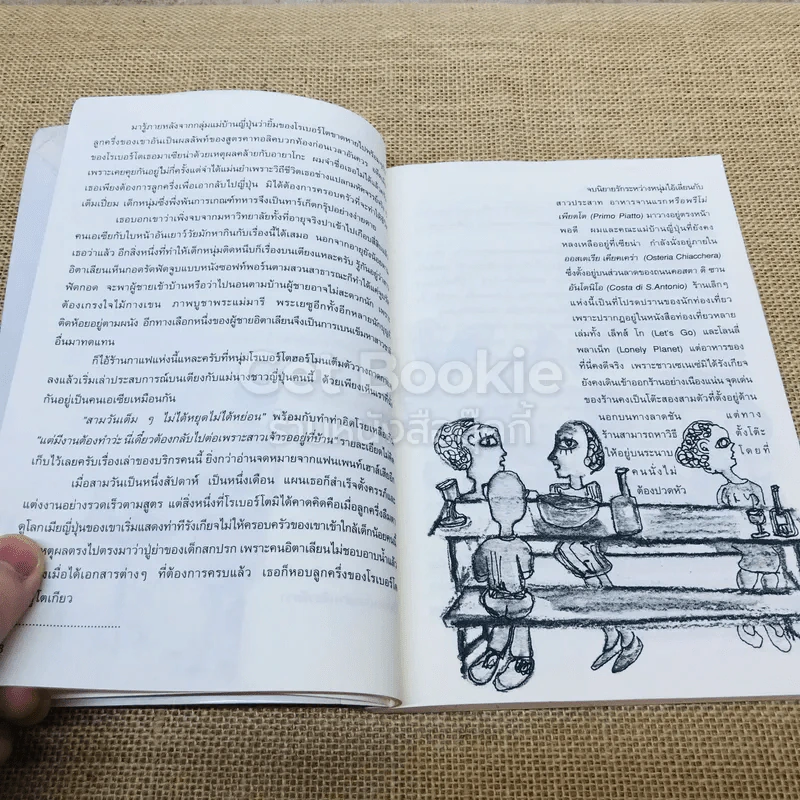 มารู้ภายหลังจากกลุ่มแม่บ้านญี่ปุ่นว่ายิ้มของโรเบอร์โตขาดหายไปพร้อม
ลูกครึ่งของเขาอันเป็นผลลัพท์ของสูตรคาทอลิคบวกท้องก่อนเวลาอันควร
ของโรเบอร์โตเธอมาเซียน่าด้วยเหตุผลคล้ายกับอายาโกะ ผมจำชื่อเธอไม่ได้แล้ว
เพราะเคยคุยกันอยู่ไม่กี่ครั้งแต่จำได้แม่นยำเพราะวิถีชีวิตเธอช่างแปลกมหัศจรรย์
เธอเพียงต้องการลูกครึ่งเพื่อเอากลับไปญี่ปุ่น มิได้ต้องการครอบครัวที่จะทำให้
เต็มเปี่ยม เด็กหนุ่มซึ่งพึ่งพ้นการเกณฑ์ทหารจึงเป็นทาร์เก็ตกรุ๊ปอย่างง่ายดาย
เธอบอกเขาว่าเพิ่งจบจากมหาวิทยาลัยทั้งที่อายุจริงปาเข้าไปเกือบสี่สิบ
คนเอเซียกับใบหน้าอันเยาว์วัยมักหากินกับเรื่องนี้ได้เสมอ นอกจากอายุยังน้อย
เธอว่าแล้ว อีกสิ่งหนึ่งที่ทำให้เด็กหนุ่มติดหนึบก็เรื่องบนเตียงแหละครับ รู้กันอยู่ว่า
อิตาเลียนเห็นกอดรัดฟัดจูบแบบหนังซอฟท์พอร์นตามสวนสาธารณะก็ทำได้แค่จูบ
ฟัดกอด จะพาผู้ชายเข้าบ้านหรือว่าไปนอนตามบ้านผู้ชายอาจไม่สะดวกนัก เพราะ
ต้องเกรงใจไม้กางเขน ภาพบูชาพระแม่มารี พระเยซูอีกทั้งอีกหลายนักบุญที่
ติดห้อยอยู่ตามผนัง อีกทางเลือกหนึ่งของผู้ชายอิตาเลียนจึงเป็นการเบนเข็มหาสาวชาติ
อื่นมาทดแทน
ก็ไอ้ร้านกาแฟแห่งนี้แหละครับที่หนุ่มโรเบอร์โตฮอร์โมนเต็มตัววางถาดกาแฟ
ลงแล้วเริ่มเล่าประสบการณ์บนเตียงกับแม่นางชาวญี่ปุ่นคนนี้ ด้วยเพียงเห็นเราที่นั่ง
กันอยู่เป็นคนเอเซียเหมือนกัน
"สามวันเต็ม ๆ ไม่ได้หยุดไม่ได้หย่อน" พร้อมกับทำท่าอิดโรยเหลือ
"แต่มีงานต้องทำว่ะ นี่เดี๋ยวต้องกลับไปต่อเพราะสาวเจ้ารออยู่ที่บ้าน" รายละเอียดไม่
เก็บไว้เลยครับเรื่องเล่าของบริกรคนนี้ ยิ่งกว่าอ่านจดหมายจากแฟนเพนท์เฮาส์เสียอีก
เมื่อสามวันเป็นหนึ่งสัปดาห์ เป็นหนึ่งเดือน แผนเธอก็สำเร็จตั้งครรภ์และ
แต่งงานอย่างรวดเร็วตามสูตร แต่สิ่งหนึ่งที่โรเบอร์โตมิได้คาดคิดคือเมื่อลูกครึ่งลืมตา
ดูโลกเมียญี่ปุ่นของเขาเริ่มแสดงท่าทีรังเกียจไม่ให้ครอบครัวของเขาเข้าใกล้เด็กน้อยคนนี้
หตุผลตรงไปตรงมาว่าปู่ย่าของเด็กสกปรก เพราะคนอิตาเลียนไม่ชอบอาบน้ำแล้ว
งเมื่อได้เอกสารต่างๆ ที่ต้องการครบแล้ว เธอก็หอบลูกครึ่งของโรเบอร์โต
โตเกียว
จบนิยายรักระหว่างหนุ่มไอ้เลียนกับ
สาวประสาท อาหารจานแรกหรือพรีโม่
เพียตโต (Primo Piatto) มาวางอยู่ตรงหน้า
พอดี ผมและคณะแม่บ้านญี่ปุ่นที่ยังคง
หลงเหลืออยู่ที่เซียน่า กำลังนั่งอยู่ภายใน
ออสเตเรีย เคียคเคร่า (Osteria Chiacchera)
ซึ่งตั้งอยู่บนส่วนลาดของถนนคอสตา ดิ ซาน
อันโตนิโอ (Costa di S.Antonio) ร้านเล็กๆ
แห่งนี้เป็นที่โปรดปรานของนักท่องเที่ยว
เพราะปรากฏอยู่ในหนังสือท่องเที่ยวหลาย
เล่มทั้ง เล็ทส์ โก (Let's Go) และโลนลี่
พลาเน็ท (Lonely Planet) แต่อาหารของ
ที่นี่คงดีจริง เพราะชาวเซเนเซ่มิได้รังเกียจ
ยังคงเดินเข้าออกร้านอย่างเนืองแน่น จุดเด่น
ของร้านคงเป็นโต๊ะสองสามตัวที่ตั้งอยู่ด้าน
นอกบนทางลาดชัน แต่ทาง
ร้านสามารถหาวิธี ตั้งโต๊ะ
ให้อยู่บนระนาบ โดยที่
คนนั่งไม่
ต้องปวดหัว
Cat Bookie
ร้านหนังสือบุ๊คกี้